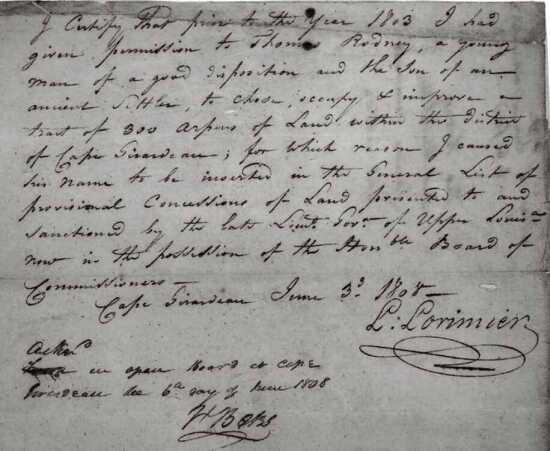 I Certify That prior to the Year 1803 I had
given permission to Thomas Rodney, a young
man of a good disposition and the Son of an
ancient Settler, to chose, occupy & improve a
tract of 300 Arpens of Land within the district
of Cape Girardeau; for which reason I caused
his name to be inserted in the General List of
provisional Concessions of Land presented to and
sanctioned by the late Lieut. Govr. of Upper Louisna
now in the possession of the Honble Board of
Commissioners —
Cape Girardeau June 3d. 1808 —
L. Lorimier
in open Board at Cape
Girardeau 6th day of June 1808